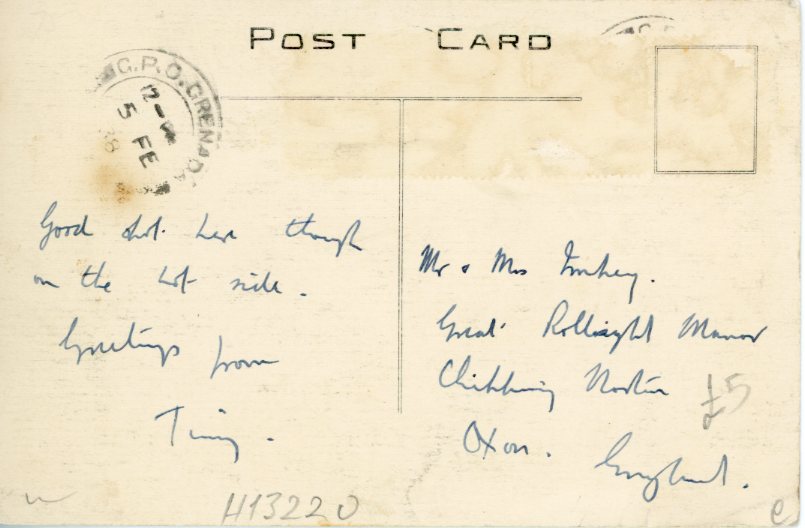 POST CARD
G.P.O. GRENADA
5 FE
38
Good here though
on the hot side.
Greetings from
Mr & Mrs
Great Rollright Manor
Chipping Norton
Oxon.
England.
£5
H13220
e